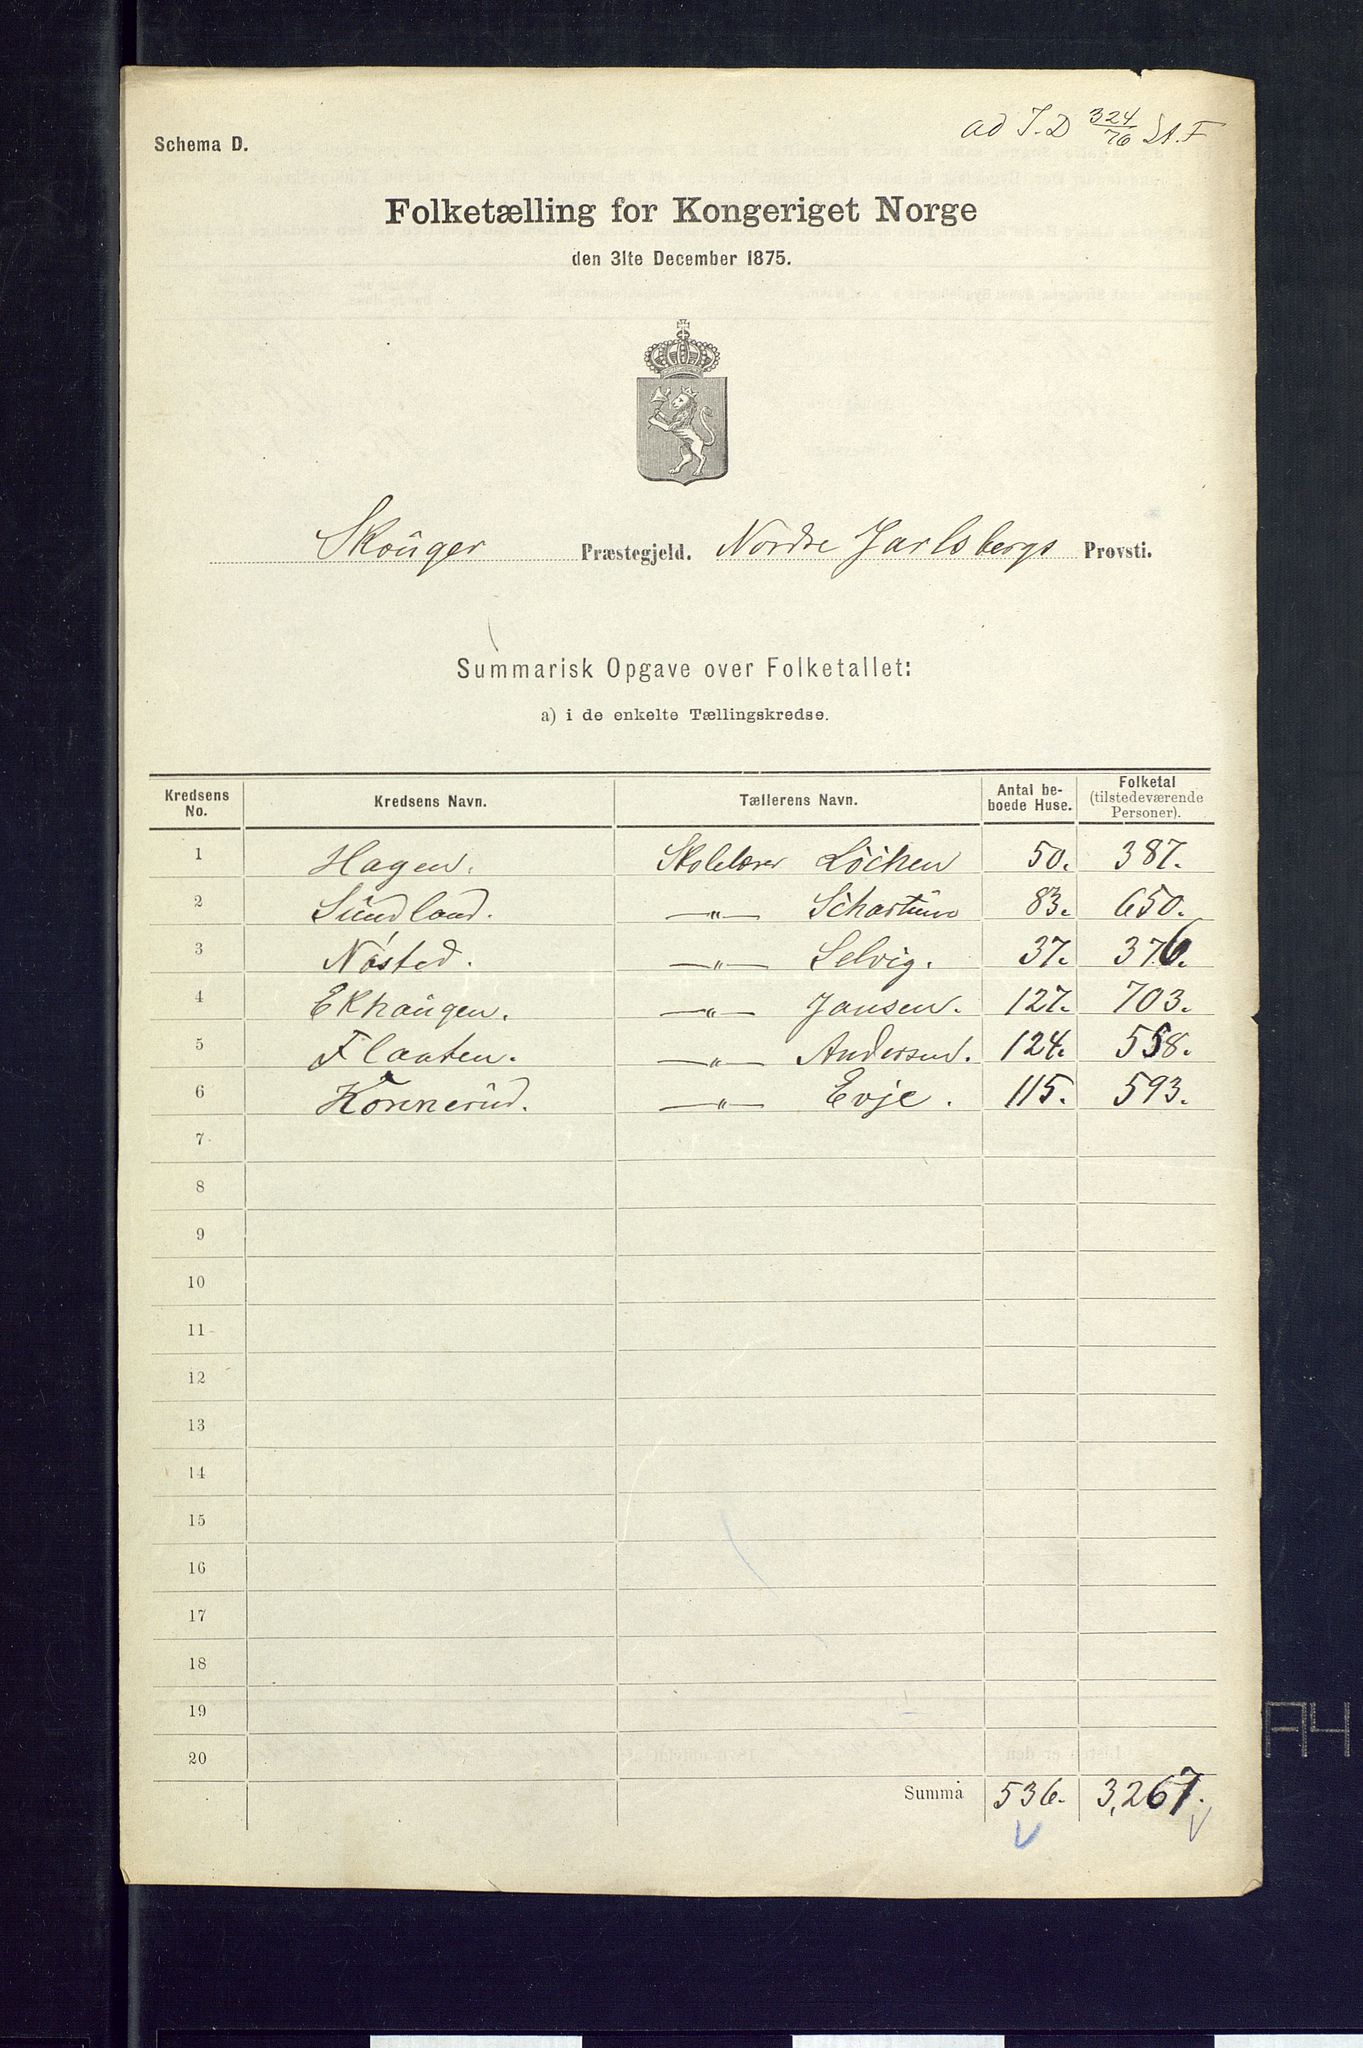 ad J.D 324/76 St. F
Schema D.
Folketælling for Kongeriget Norge
den 31te December 1875.
Skouger Præstegjeld. Nordre Jarlsbergs Provsti.
Summarisk Opgave over Folketallet:
a) i de enkelte Tællingskredse.
Kredsens No. Kredsens Navn. Tællerens Navn. Antal beboede Huse. Folketal (tilstedeværende Personer).
1 Hagen. Skolelærer Löchen 50. 387.
2 Sundland. —„— Schartum 83. 650.
3 Nøsted. —„— Selvig. 37. 376.
4 Ekhaugen. —„— Jansen. 127. 703.
5 Flaaten. —„— Andersen. 124. 558.
6 Konnerud. —„— Evje. 115. 593.
7
8
9
10
11
12
13
14
15
16
17
18
19
20
Summa 536. 3,267.
A4